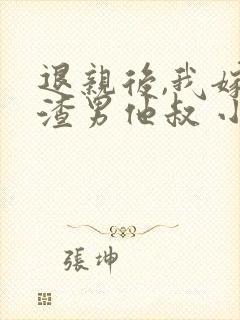 退親後,我嫁
渣男他叔 小
張坤